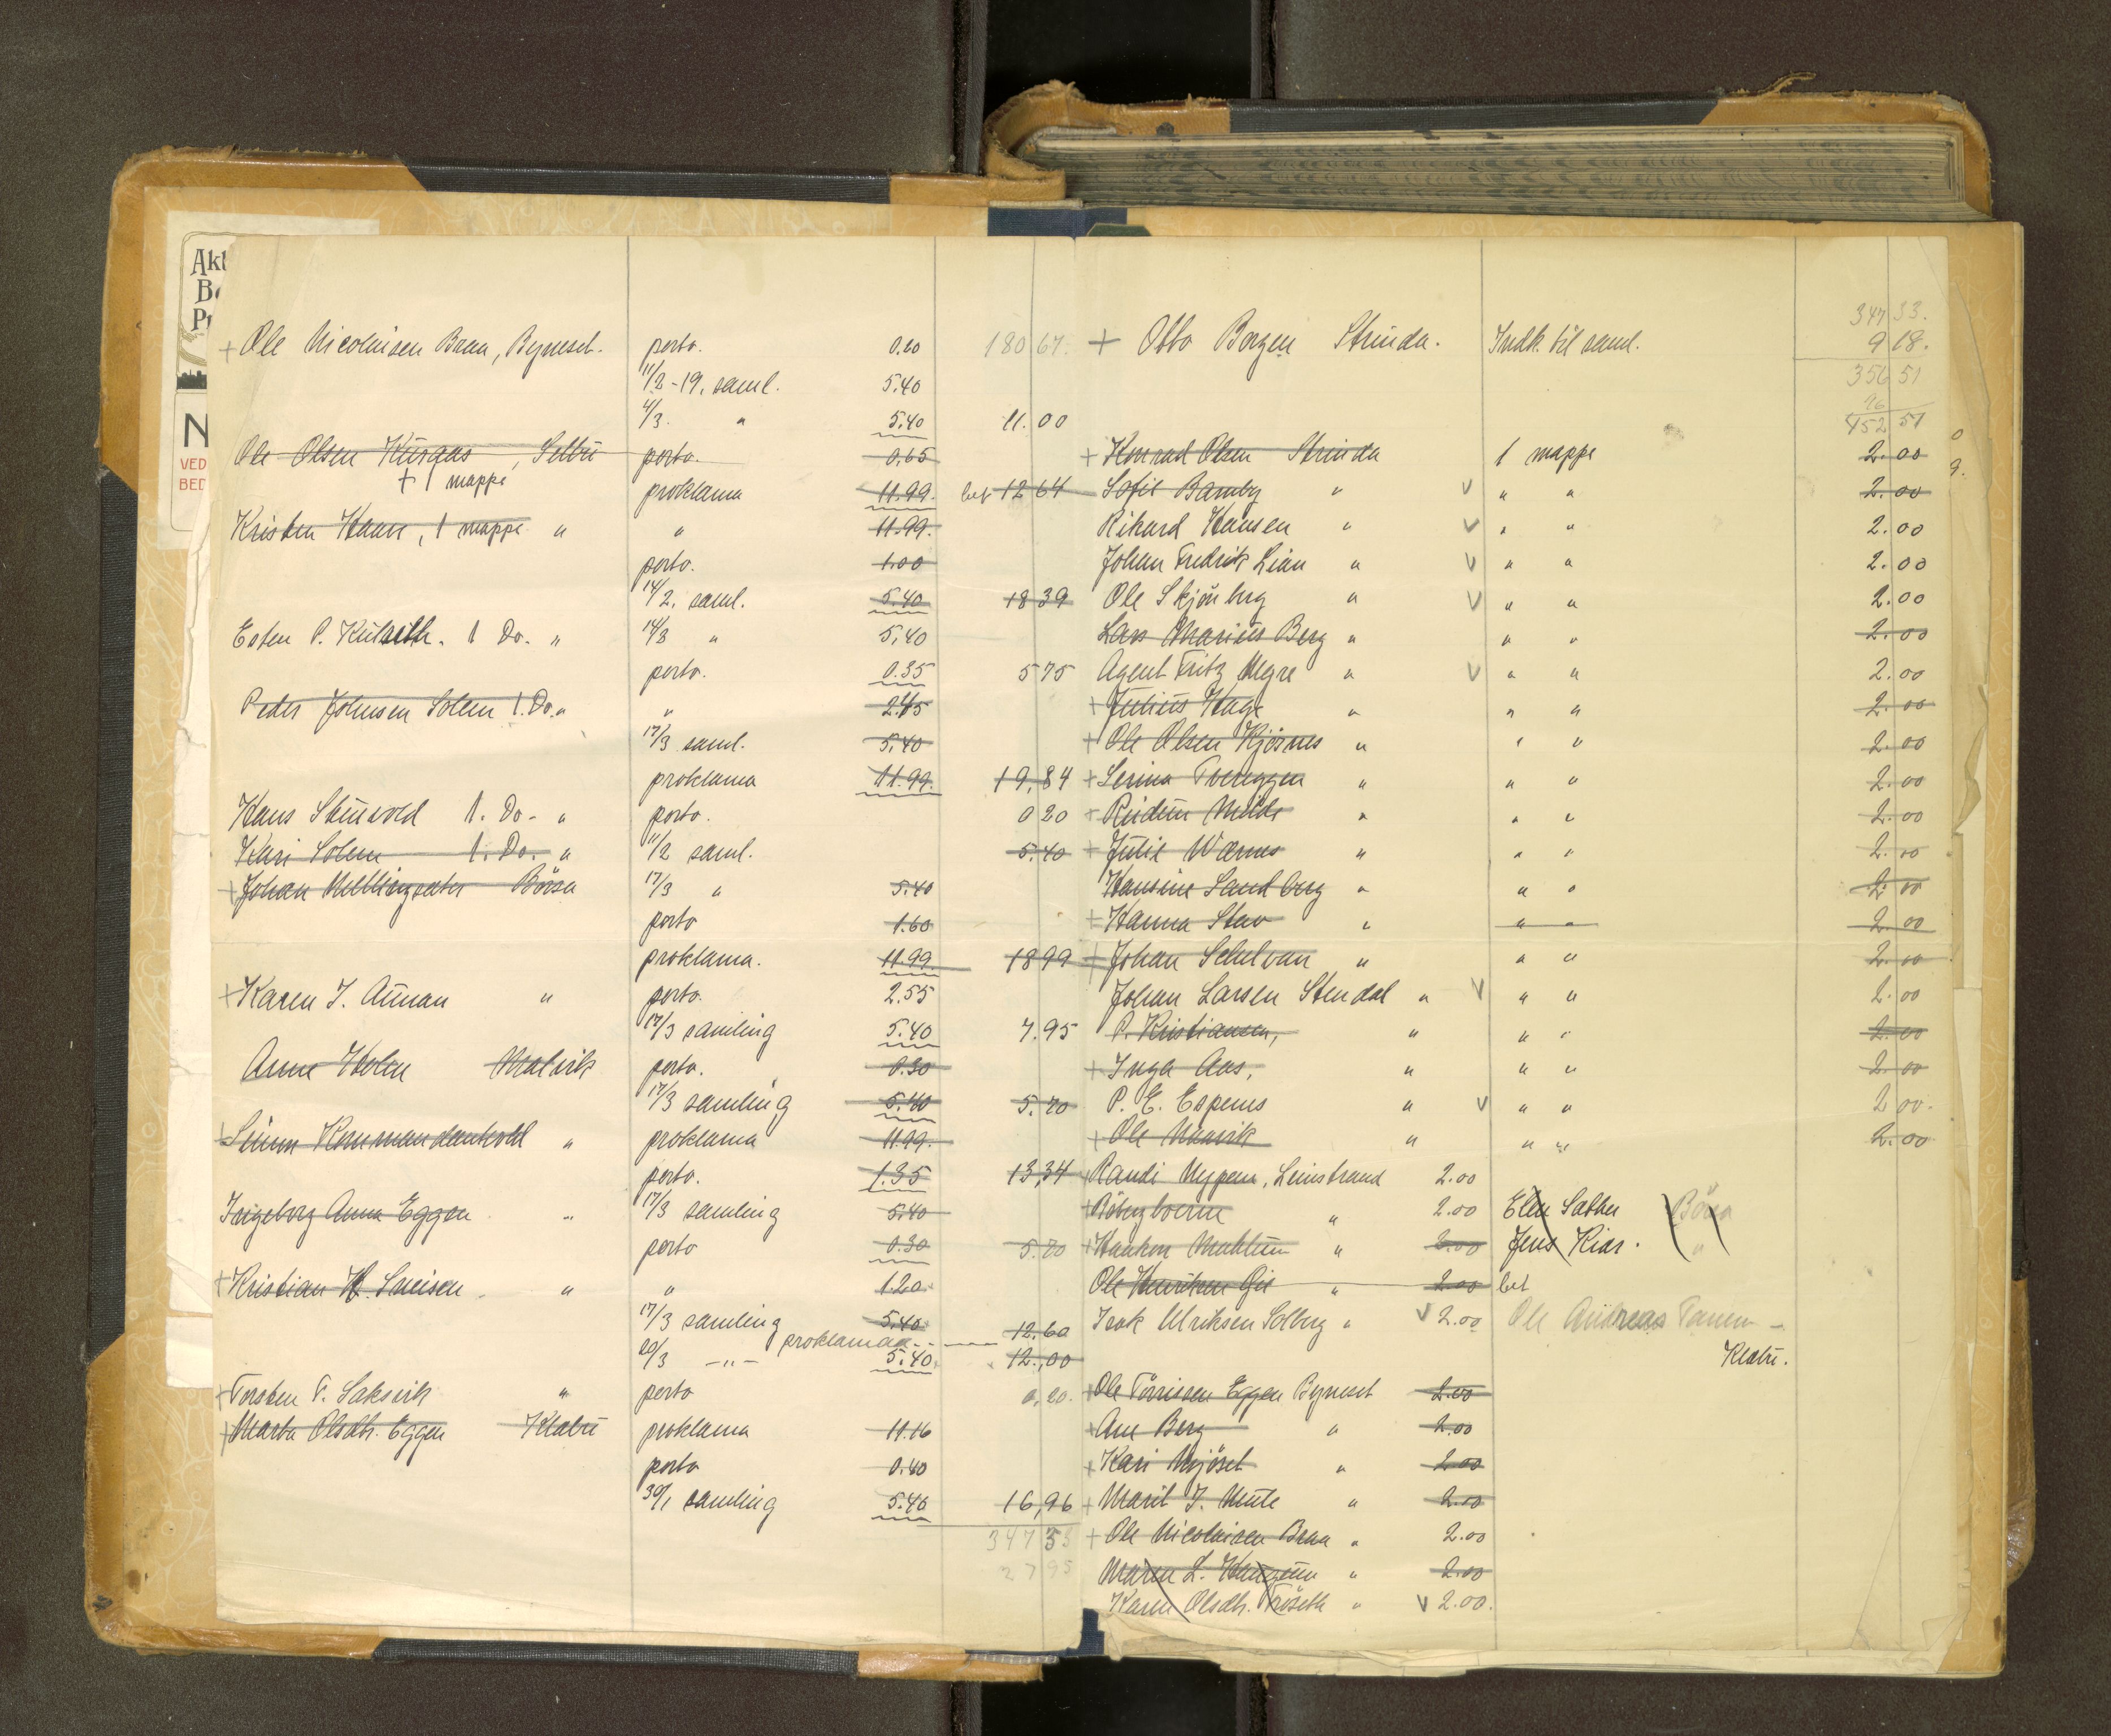 Akt
Be
Pr
N
VED
BED
+ Ole Nicolaisen Braa, Bynesset. porto. 0.20 180 67.
11/2-19. saml. 5.40
4/3. " 5.40 11.00
Ole Olsen Kurgaas, Selbu porto. 0.65
+ 1 mappe proklama 11.99. bet 12 64
Kristen Haave, 1 mappe " " 11.99.
porto. 1.00
14/2. saml. 5.40 18 39
Esten P. Kulseth. 1 Do. " 14/3 " 5.40
porto. 0.35 5 75
Peder Johnsen Solem 1. Do. " " 2.45
17/3 saml. 5.40
proklama 11.99. 19,84
Hans Stenvold 1. Do. " porto. 0 20
Kari Solem 1. Do. " 11/2 saml. 5.40
+ Johan Mellingsæter Börsa 17/3 " 5.40
porto 1.60
proklama. 11.99. 18 99
+ Karen J. Aunan " porto. 2.55
17/3 samling 5.40 7.95
Anne Holm Malvik porto. 0.30
17/3 samling 5.40 5.70
+ Simon Kommandantvold " proklama 11.99.
porto. 1.35 13,34
Ingeborg Anna Eggen " 17/3 samling 5.40
porto 0.30 5.70
+ Kristian H. Sneisen " " 1.20
17/3 samling 5.40 12.60
proklamaa
20/3 -"- 5.40 12.,00
+ Torsten T. Saksvik " porto 0,20.
+ Marta Olsdtr. Eggen Klæbu proklama 11.16
porto 0.40
30/1 samling 5.40 16,96
347 33
27 95
347 33.
+ Otto Borgen Strinda. Indk. til saml. 9 18.
356 51
96
452 51
+ Konrad Olsen Strinda 1 mappe 2.00
Sofie Bamby " V " " 2.00
Rikard Hansen " V " " 2.00
Johan Fredrik Lian " V " " 2.00
Ole Skjönberg " V " " 2.00
Lars Marius Berg " " " 2.00
Agent Fritz Megre " V " " 2.00
+ Julius Hage " " " 2.00
+ Ole Olsen Kjösnes " " " 2.00
+ Serina Tvereggen " " " 2.00
+ " " " 2.00
+ Julie Wærnes " " " 2.00
Hansine Sandberg " " " 2.00
+ Hanna Stav " " " 2.00
+ Johan Schelvan " " " 2.00
Johan Larsen Stendal " V " " 2.00
P. Kristiansen, " " " 2.00
+ Inga Aas, " " " 2.00
P. E. Espenes " V " " 2 00.
+ Ole Maavik " " " 2.00
+ Randi Nypen, Leinstrand 2.00
+ " 2.00 Elen Sæther Börsa
+ Haakon " 2.00 Jens Kiær. "
Ole " 2.00 bet
Isak Ulriksen Solberg " V 2.00 Ole Andreas Tanem -
Klæbu.
+ Ole Törrissen Eggen Bynesset 2.00
+ Ane Berg " 2.00
+ Kari Mjöset " 2.00
+ Marit J. " 2.00
+ Ole Nicolaisen Braa " 2.00
Maren L. " 2.00
Karen Olsdtr. Fröseth " V 2.00.